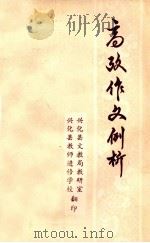 高考作文例析
兴化县文教局教研室
兴化县教师进修学校
翻印